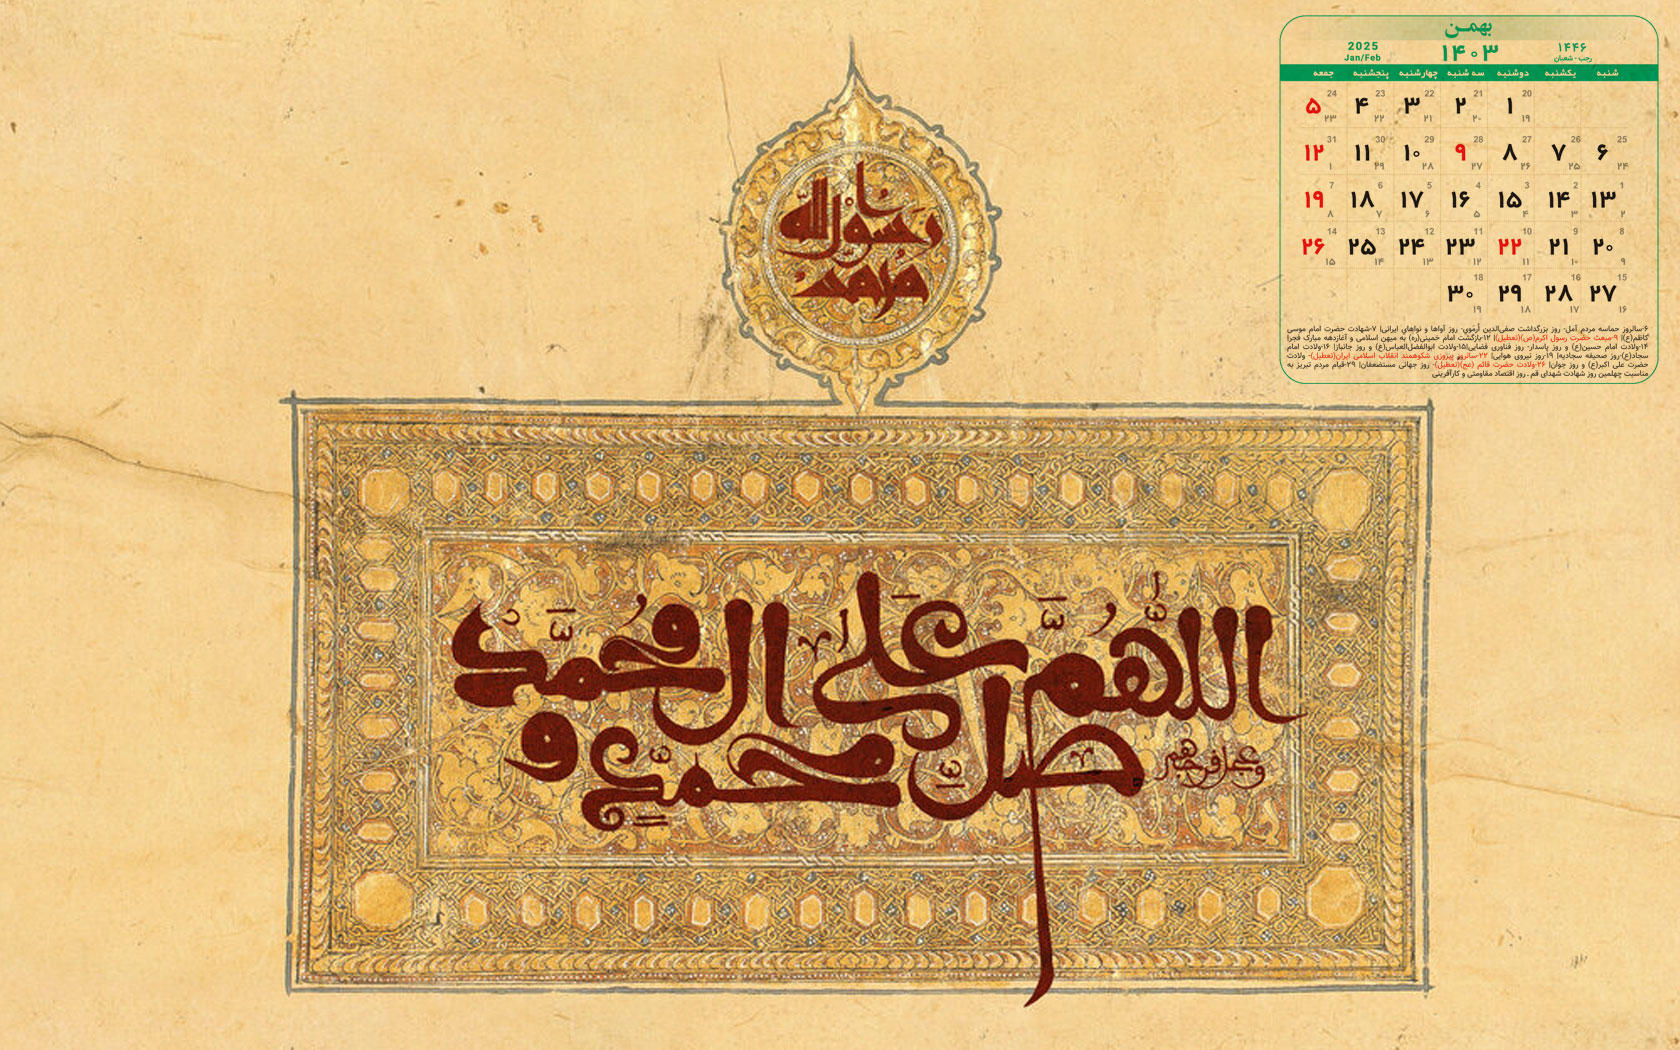 بهمن
۱۴۴۶ ۱۴۰۳ 2025
رجب - شعبان Jan/Feb
شنبه یکشنبه دوشنبه سه شنبه چهارشنبه پنجشنبه جمعه
20 21 22 23 24
۱ ۲ ۳ ۴ ۵
۱۹ ۲۰ ۲۱ ۲۲ ۲۳
25 26 27 28 29 30 31
۶ ۷ ۸ ۹ ۱۰ ۱۱ ۱۲
۲۴ ۲۵ ۲۶ ۲۷ ۲۸ ۲۹ ۱
1 2 3 4 5 6 7
۱۳ ۱۴ ۱۵ ۱۶ ۱۷ ۱۸ ۱۹
۲ ۳ ۴ ۵ ۶ ۷ ۸
8 9 10 11 12 13 14
۲۰ ۲۱ ۲۲ ۲۳ ۲۴ ۲۵ ۲۶
۹ ۱۰ ۱۱ ۱۲ ۱۳ ۱۴ ۱۵
15 16 17 18
۲۷ ۲۸ ۲۹ ۳۰
۱۶ ۱۷ ۱۸ ۱۹
۶-سالروز حماسه مردم آمل- روز بزرگداشت صفی‌الدین اُرمَوی- روز آواها و نواهای ایرانی| ۷-شهادت حضرت امام موسی
کاظم(ع)| ۹-مبعث حضرت رسول اکرم(ص)(تعطیل)| ۱۲-بازگشت امام خمینی(ره) به میهن اسلامی و آغازدهه مبارک فجر|
۱۴-ولادت امام حسین(ع) و روز پاسدار- روز فناوری فضایی|۱۵-ولادت ابوالفضل‌العباس(ع) و روز جانباز| ۱۶-ولادت امام
سجاد(ع)-روز صحیفه سجادیه| ۱۹-روز نیروی هوایی| ۲۲-سالروز پیروزی شکوهمند انقلاب اسلامی ایران(تعطیل)- ولادت
حضرت علی اکبر(ع) و روز جوان| ۲۶-ولادت حضرت قائم (عج)(تعطیل)- روز جهانی مستضعفان| ۲۹-قیام مردم تبریز به
مناسبت چهلمین روز شهادت شهدای قم - روز اقتصاد مقاومتی و کارآفرینی
یا رسول الله
محمد
اللّهُمَّ صَلِّ عَلی
مُحَمَّدٍ وَ
الِ مُحَمَّد
وعجل فرجهم